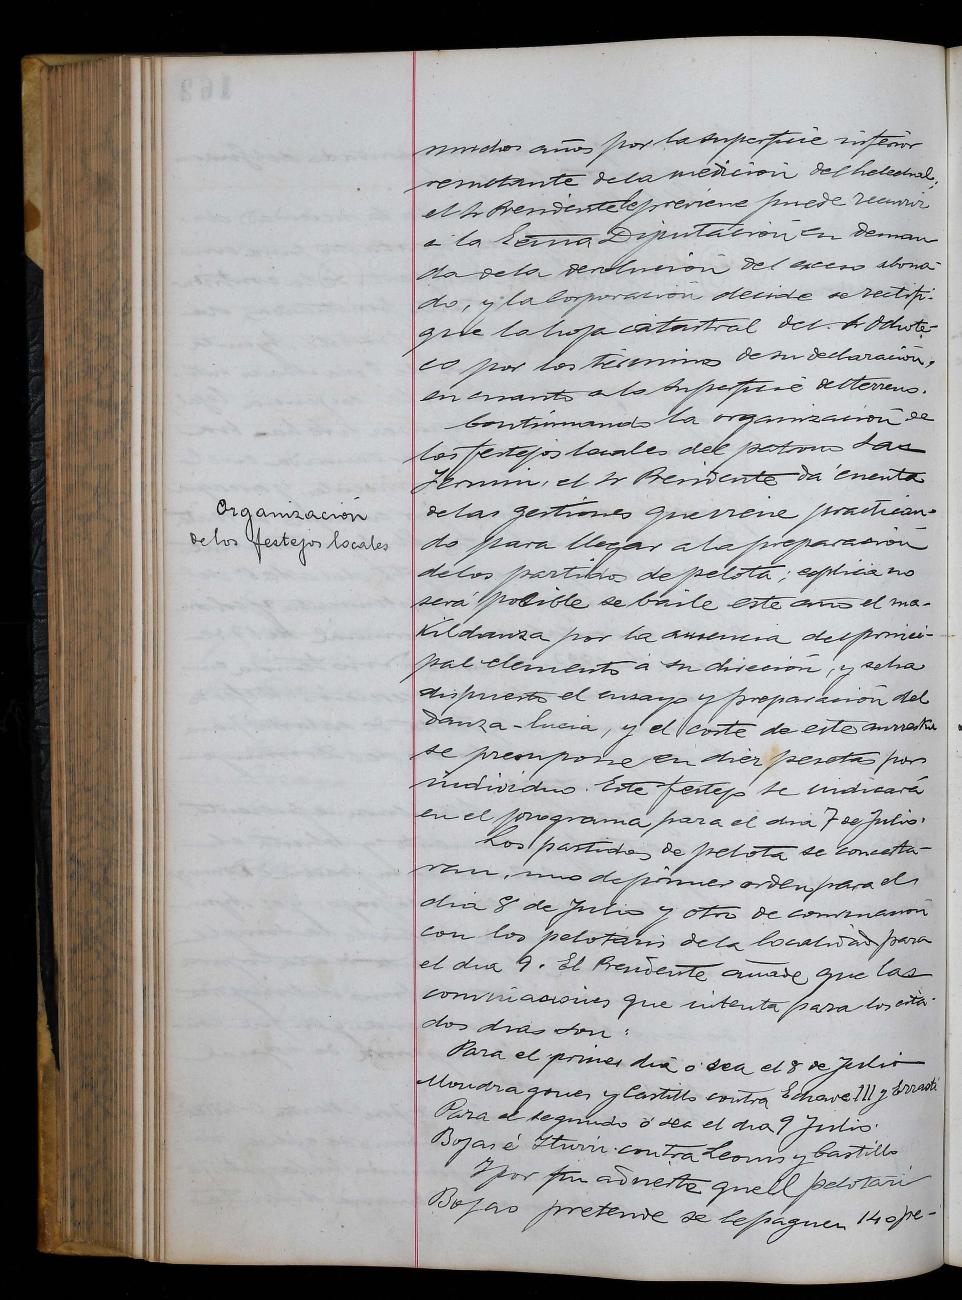 muchos años por la superficie inferior
resultante de la medicion del helechal;
el Sr Presidente le previene puede recurrir
a la Excma Diputación en deman-
da de la devolución del exceso abona-
do, y la Corporación decide se rectifi-
que la hoja catastral del Sr
co por los términos de su declaración,
en cuanto a la superficie del terreno.
Continuando la organización de
los festejos locales del patrono San
Fermin, el Sr Presidente da cuenta
de las gestiones que viene practican-
do para llegar a la preparación
de los partidos de pelota; explica no
será posible se baile este año el ma-
kildanza por la ausencia del princi-
pal elemento a su dirección, y se ha
dispuesto el ensayo y preparación del
danza-lucia, y el coste de este aurresku
se presupone en diez pesetas por
individuo. Este festejo se indicará
en el programa para el dia 7 de Julio.
Organización
de los festejos locales
Los partidos de pelota se concerta-
ran, uno de primer orden para el
dia 8 de Julio y otro de convinación
con los pelotaris de la localidad para
el dia 9. El Presidente añade que las
convinaciones que intenta para los cita-
dos dias son:
Para el primer dia o sea el 8 de Julio
Mondragones y Castillo contra Echave III y Errasti
Para el segundo ó sea el dia 9 Julio.
é Iturri contra y Castillo
Y por fin advierte que el pelotari
pretende se le paguen 140 pe-